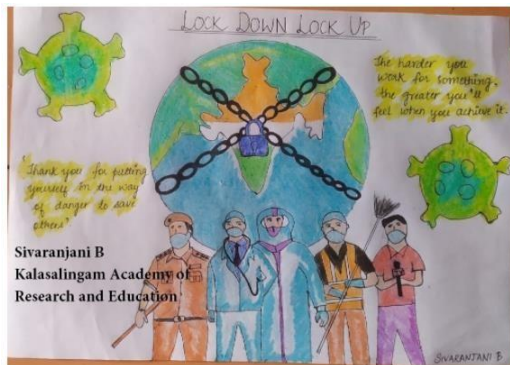 LOCK DOWN LOCK UP
The harder you
work for something,
the greater you'll
feel when you achieve it.
"Thank you for putting
yourself in the way
of danger to save
others"
Sivaranjani B
Kalasalingam Academy of
Research and Education
SIVARANJANI B